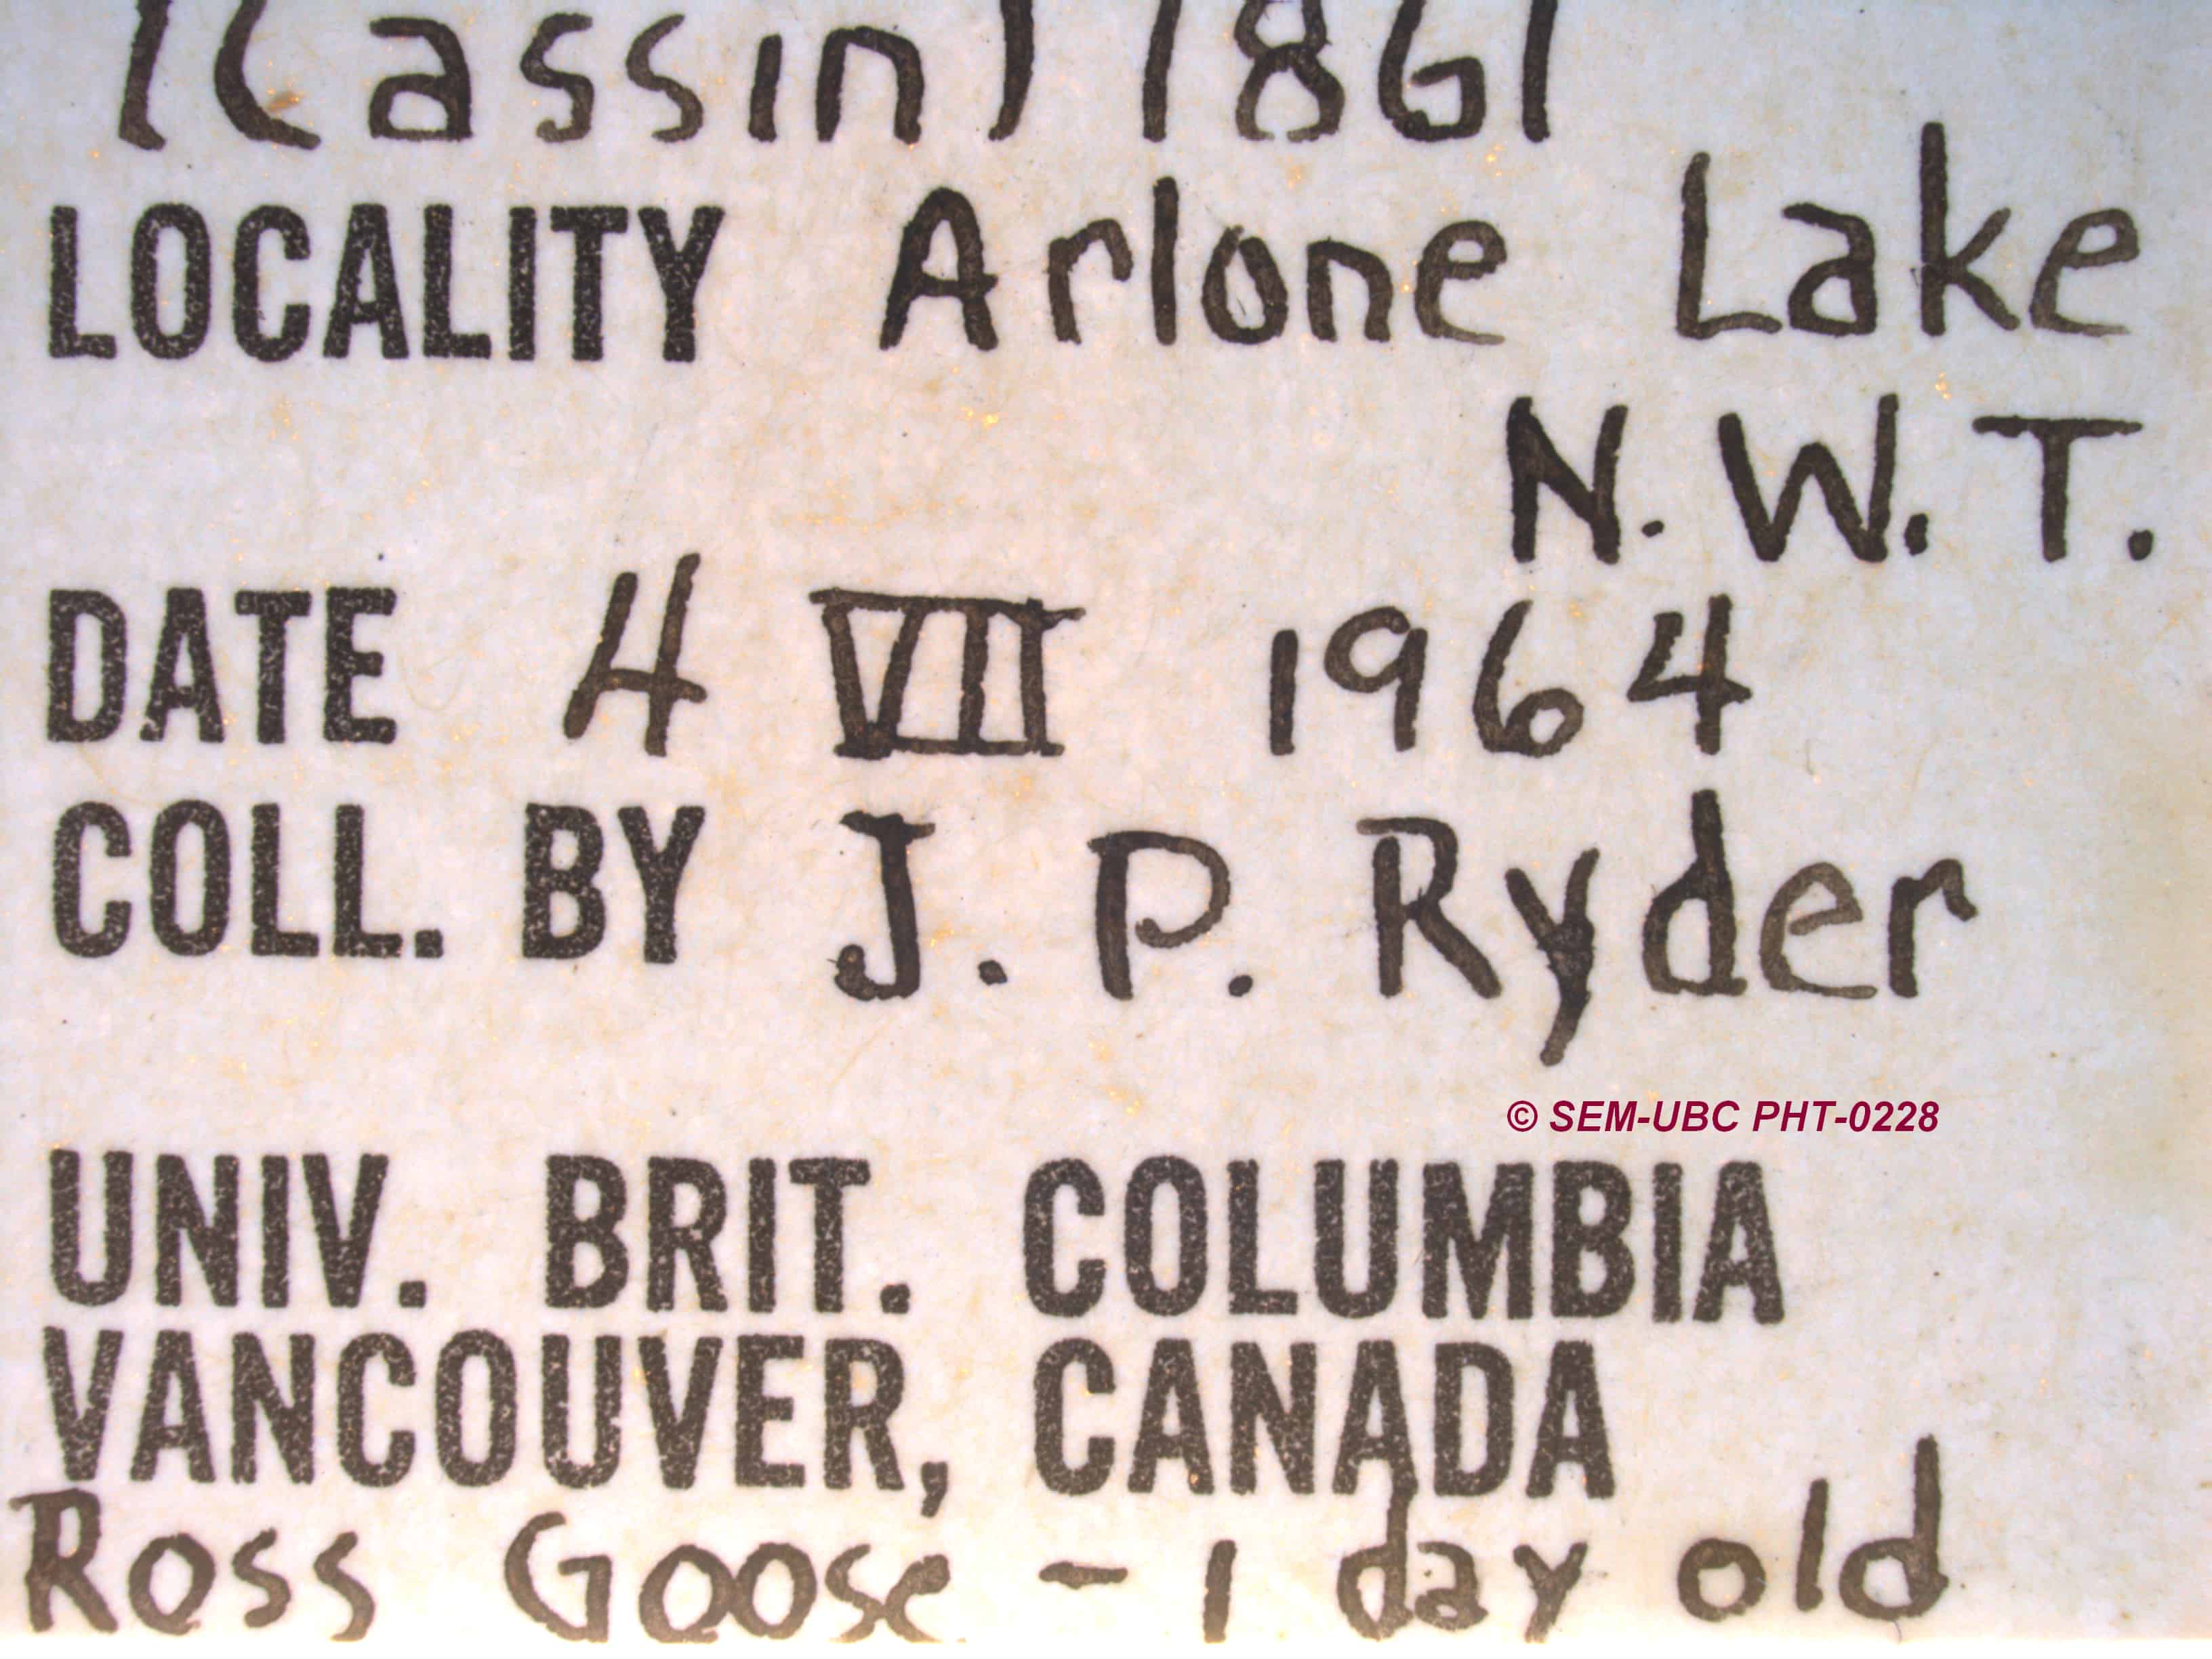 (Cassin) 1861
LOCALITY Arlone Lake
N.W.T.
DATE 4 VII 1964
COLL. BY J. P. Ryder
© SEM-UBC PHT-0228
UNIV. BRIT. COLUMBIA
VANCOUVER, CANADA
Ross Goose - 1 day old